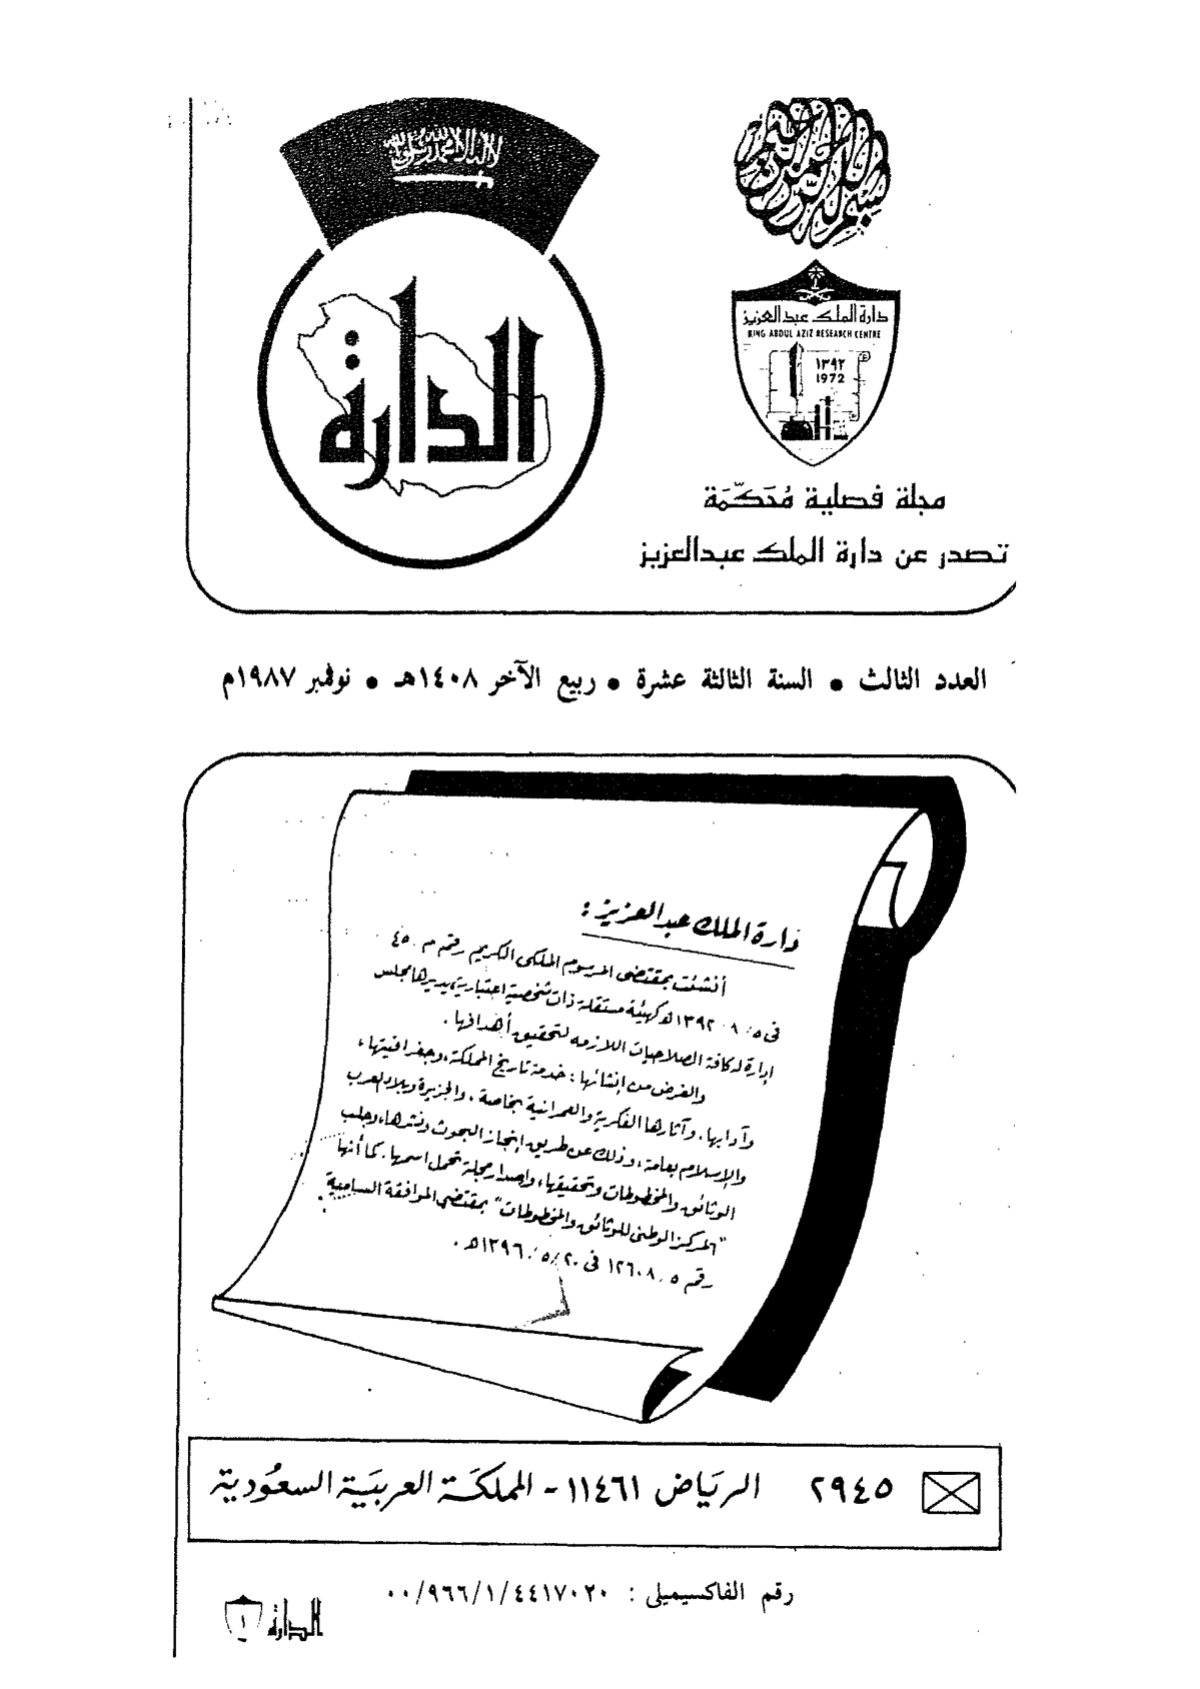 بسم الله الرحمن الرحيم
لا إله إلا الله محمد رسول الله
الدارة
دارة الملك عبدالعزيز
KING ABDUL AZIZ RESEARCH CENTRE
١٣٩٢
1972
مجلة فصلية مُحَكّمَة
تصدر عن دارة الملك عبدالعزيز
العدد الثالث ● السنة الثالثة عشرة ● ربيع الآخر ١٤٠٨هـ ● نوفمبر ١٩٨٧م
دارة الملك عبد العزيز :
أنشئت بمقتضى المرسوم الملكى الكريم رقم م ٤٥٠
فى ٨/٠٥/ ١٣٩٢هـ كهيئة مستقلة ذات شخصية اعتبارية، يديرها مجلس
إدارة له كافة الصلاحيات اللازمه لتحقيق أهدافها .
والغرض من إنشائها : خدمة تاريخ المملكة، وجغرافيتها،
وآدابها. وآثارها الفكرية والعمرانية بخاصة. والجزيرة وبلاد العرب
والإسلام بعامة، وذلك عن طريق إنجاز البحوث ونشرها، وجلب
الوثائق والمخطوطات وتحقيقها، واصدار مجلة تحمل اسمها. كما أنها
"المركز الوطنى للوثائق والمخطوطات" بمقتضى الموافقة السامية
رقم ٥/١٢٦٠٨ فى ٢٠/٥/١٣٩٦هـ .
٢٩٤٥ الريَاض ١١٤٦١ - المملكَة العربيَة السعُودية
رقم الفاكسيميلى : ٠٠/٩٦٦/١/٤٤١٧٠٢٠
الدارة
١